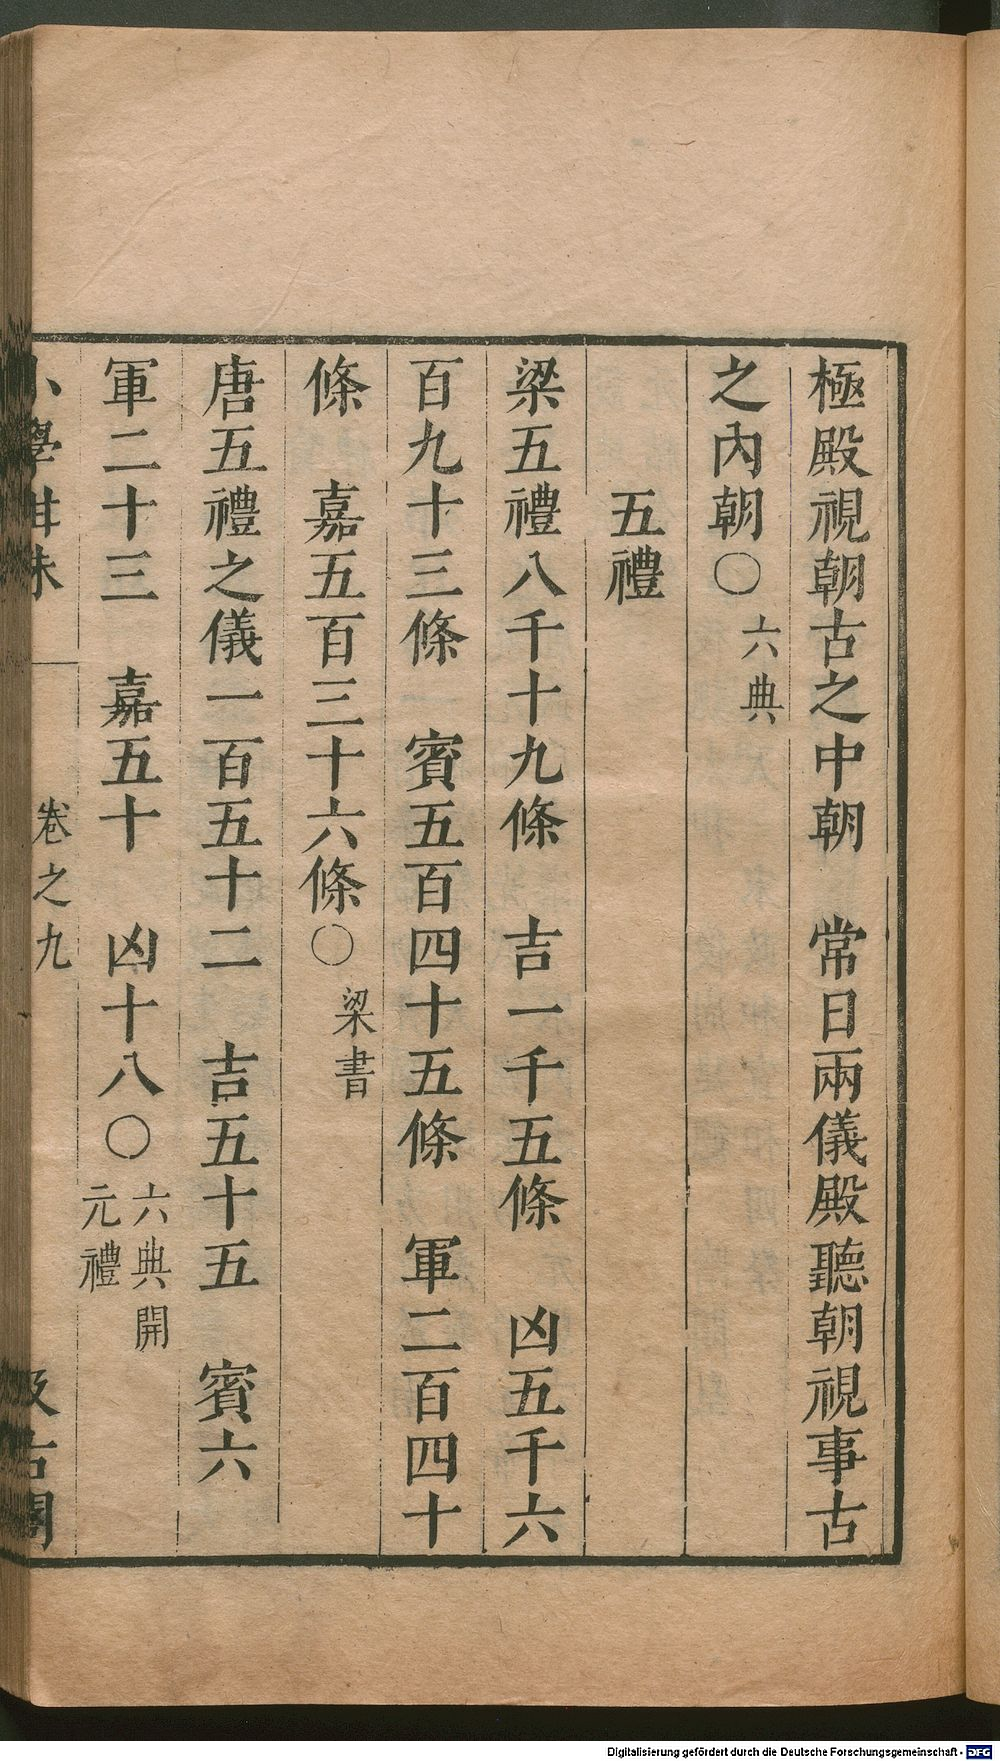 極殿視朝古之中朝　常日兩儀殿聽朝視事古
之內朝〇六典
五禮
梁五禮八千十九條　吉一千五條　凶五千六
百九十三條　賓五百四十五條　軍二百四十
條　嘉五百三十六條〇梁書
唐五禮之儀一百五十二　吉五十五　賓六
軍二十三　嘉五十　凶十八〇六典開
元禮
小學紺珠
卷之九
汲古閣
Digitalisierung gefördert durch die Deutsche Forschungsgemeinschaft - DFG